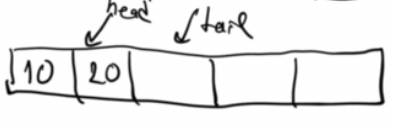 head
tail
10 20